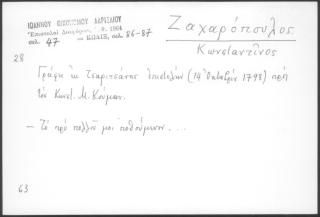 ΙΩΑΝΝΟΥ ΟΙΚΟΝΟΜΟΥ ΛΑΡΙΣΑΙΟΥ
Ἐπιστολαί Διαφόρων, 1964
σελ. 47 — ΚΩΔΙΞ, σελ. 86-87
Ζαχαρόπουλος
Κωνσταντῖνος
28
Γράφει ἐκ Τσαριτσάνης ἐπιστολήν (14 Ὀκτωβρίου 1798) πρὸς
τὸν Κωνστ. Μ. Κούμαν.
— Τὸ πρὸ πολλοῦ μοι ποθούμενον ...
63